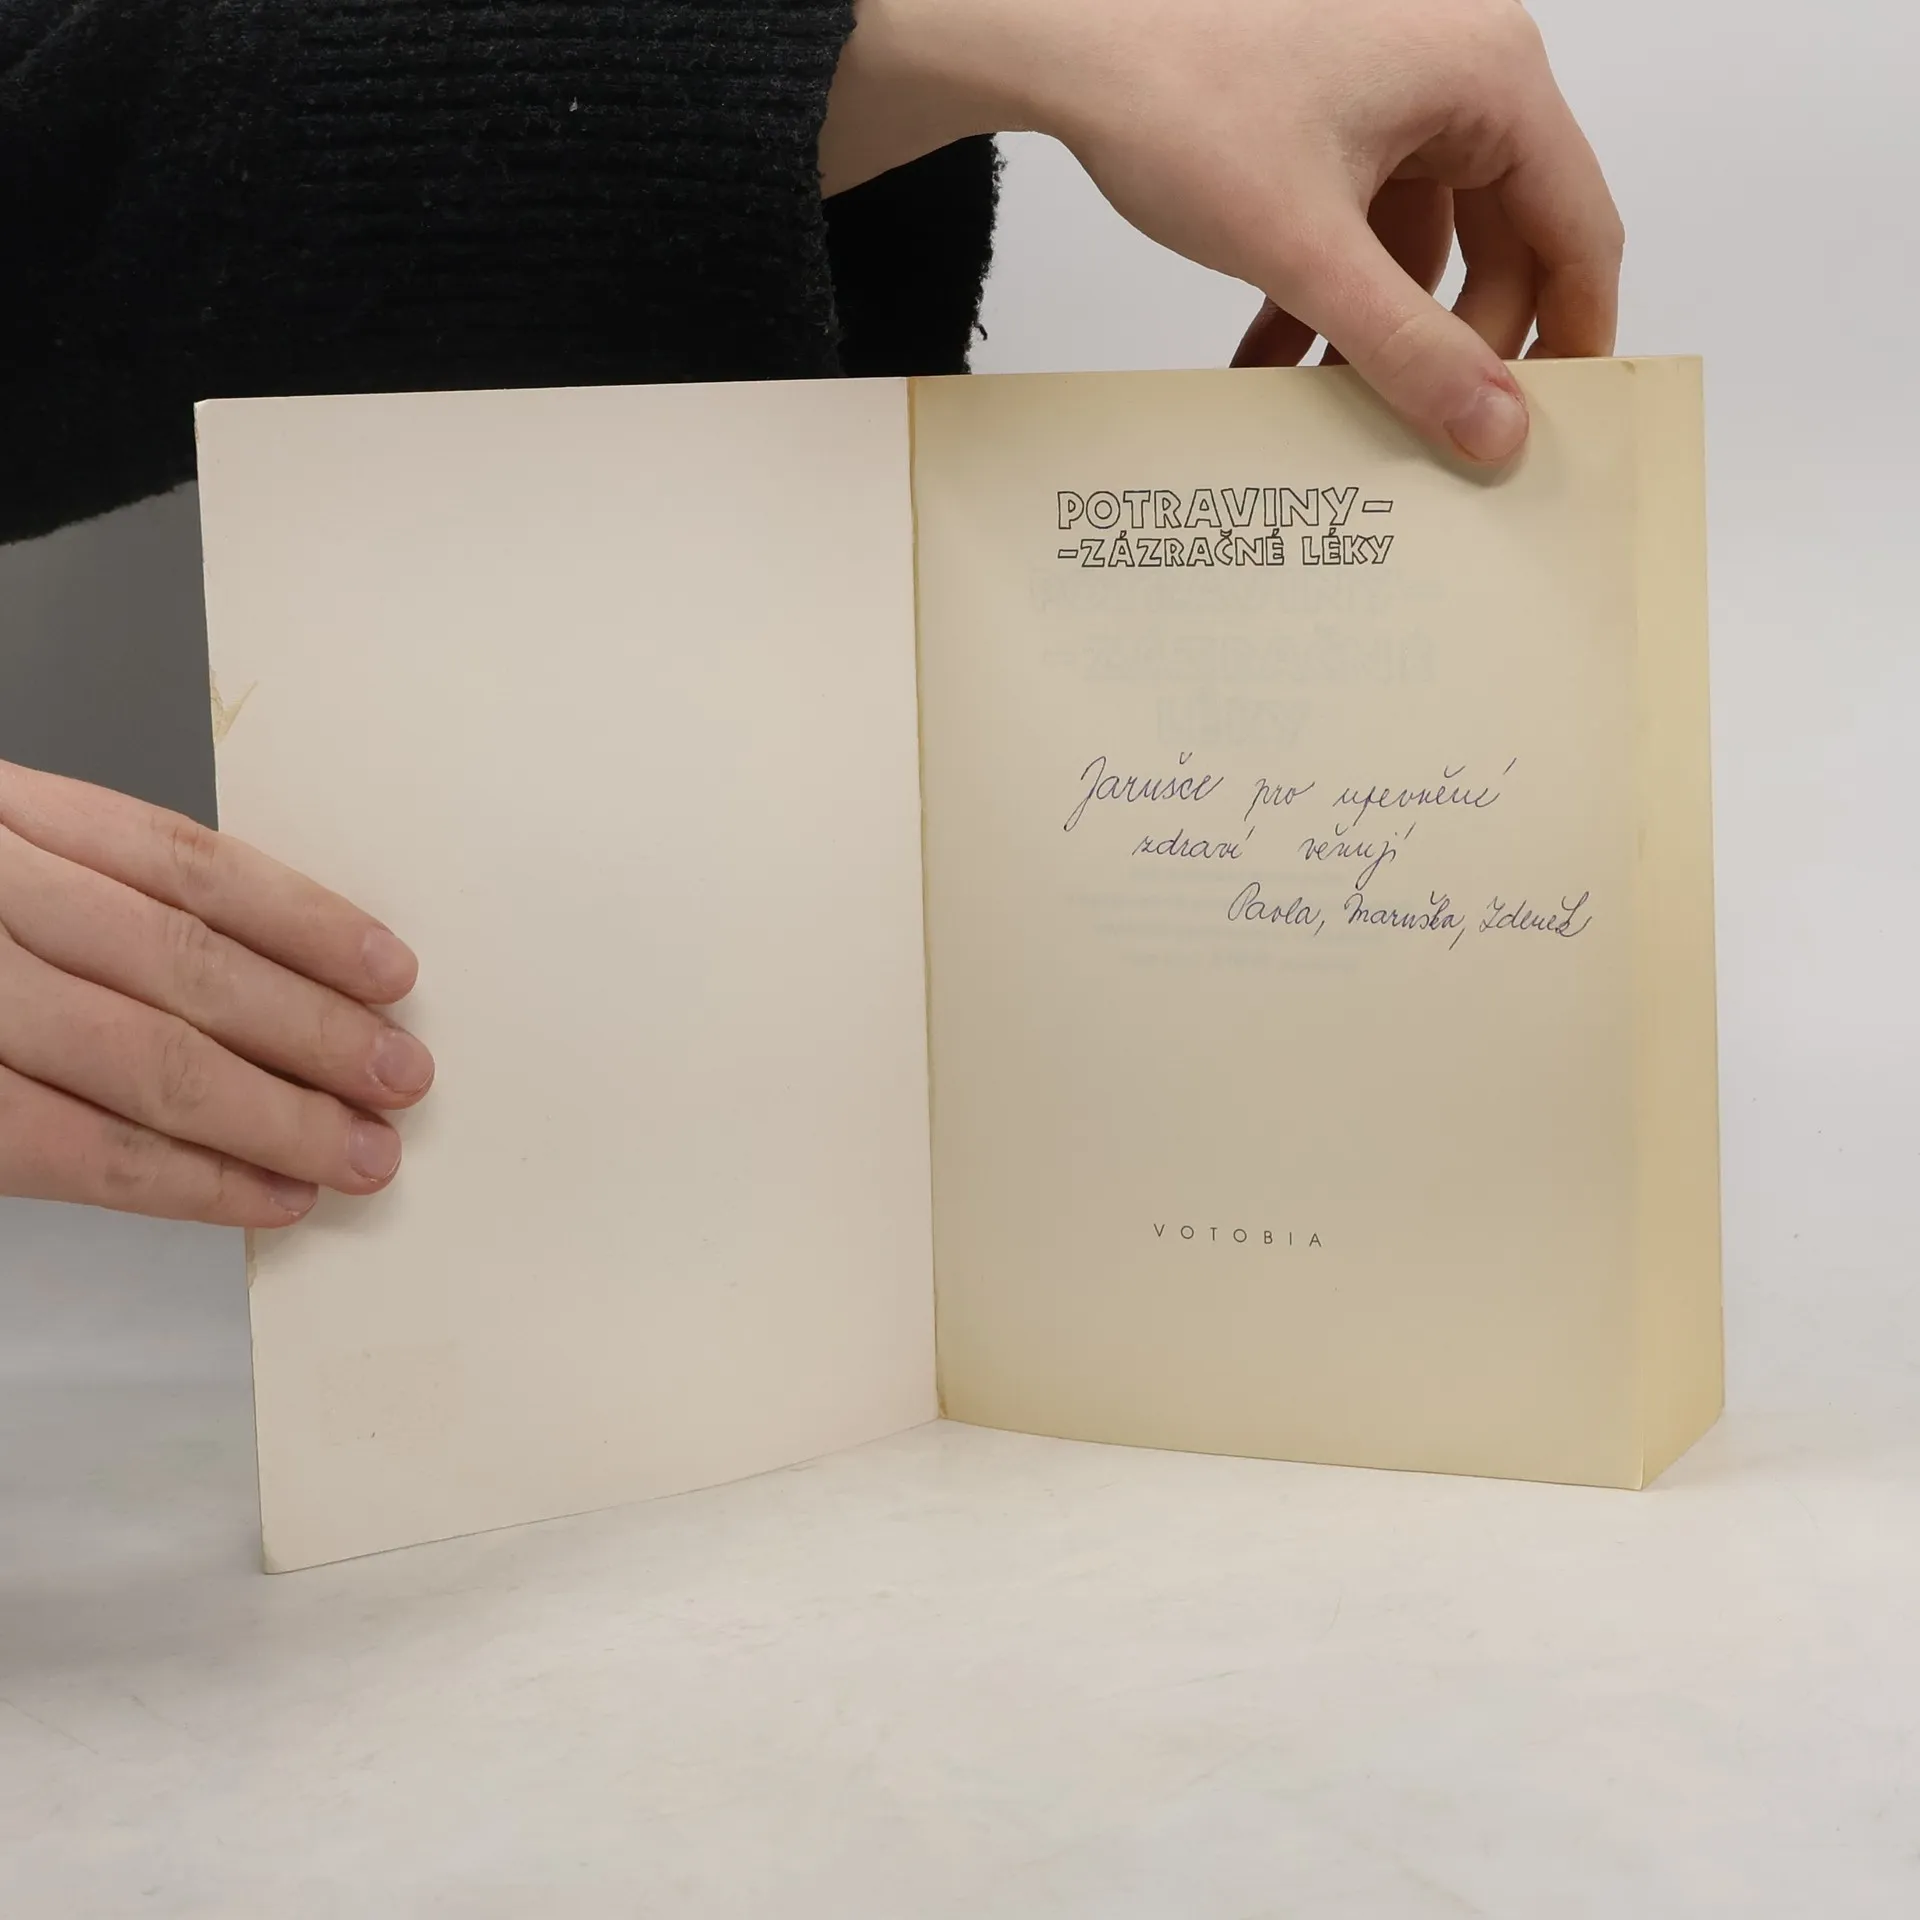 POTRAVINY-
-ZÁZRAČNÉ LÉKY
Jarušce pro upevnění
zdraví věnují
Pavla, Maruška, Zdeněk
VOTOBIA